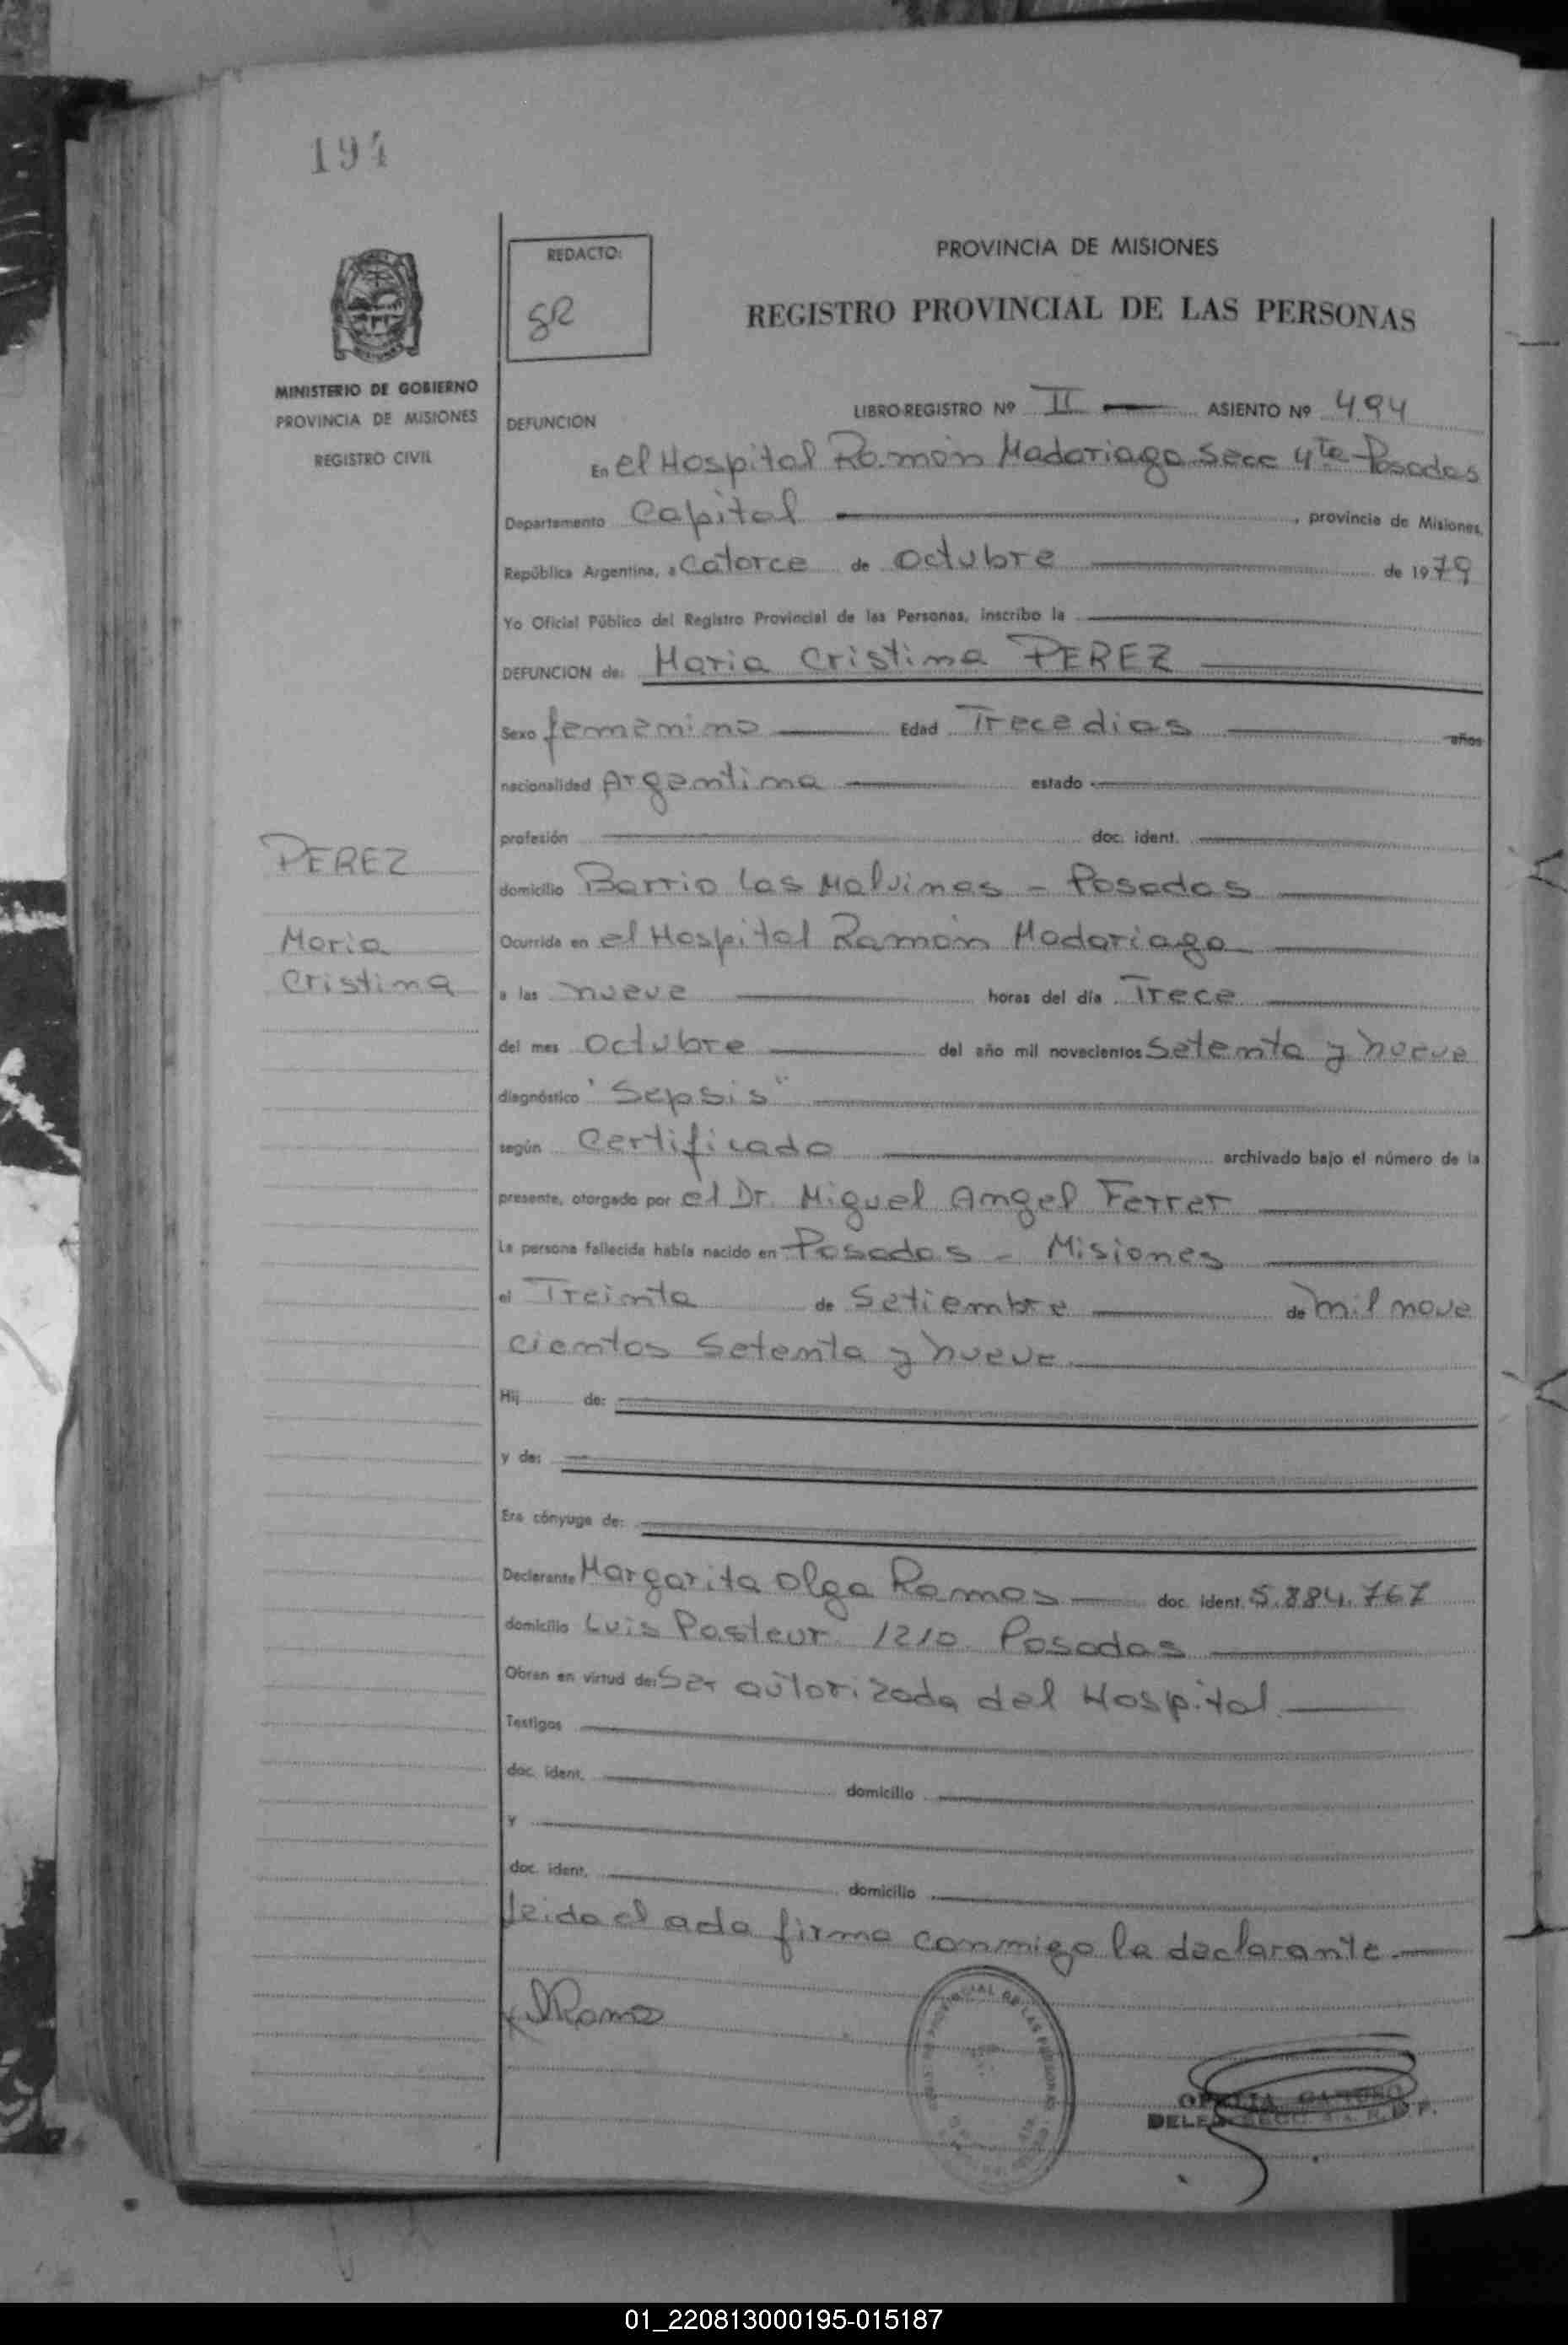 194
MINISTERIO DE GOBIERNO
PROVINCIA DE MISIONES
REGISTRO CIVIL
REDACTO:
SR
PROVINCIA DE MISIONES
REGISTRO PROVINCIAL DE LAS PERSONAS
DEFUNCION
LIBRO-REGISTRO Nº II ASIENTO Nº 494
En el Hospital Ramón Madariaga Secc 4ta Posadas
Departamento Capital, provincia de Misiones,
República Argentina, a Catorce de Octubre de 1979
Yo Oficial Público del Registro Provincial de las Personas, inscribo la
DEFUNCION de: Maria Cristina PEREZ
Sexo femenino Edad Trece dias años
nacionalidad Argentina estado
profesión doc. ident.
domicilio Barrio Las Malvinas - Posadas
Ocurrida en el Hospital Ramón Madariaga
a las nueve horas del día Trece
del mes Octubre del año mil novecientos Setenta y nueve
diagnóstico "Sepsis"
según Certificado archivado bajo el número de la
presente, otorgado por el Dr. Miguel Angel Ferrer
La persona fallecida había nacido en Posadas - Misiones
el Treinta de Setiembre de mil nove
cientos Setenta y nueve
Hij de:
y de:
Era cónyuge de:
Declarante Margarita Olga Ramos doc. ident. 5.884.767
domicilio Luis Pasteur 1210 Posadas
Obran en virtud de: Ser autorizada del Hospital
Testigos
doc. ident. domicilio
y
doc. ident. domicilio
leida el acta firma conmigo la declarante
PEREZ
Maria
Cristina
Ramos
DE LAS PERSONAS
OFELIA
R. P. P.
01_220813000195-015187